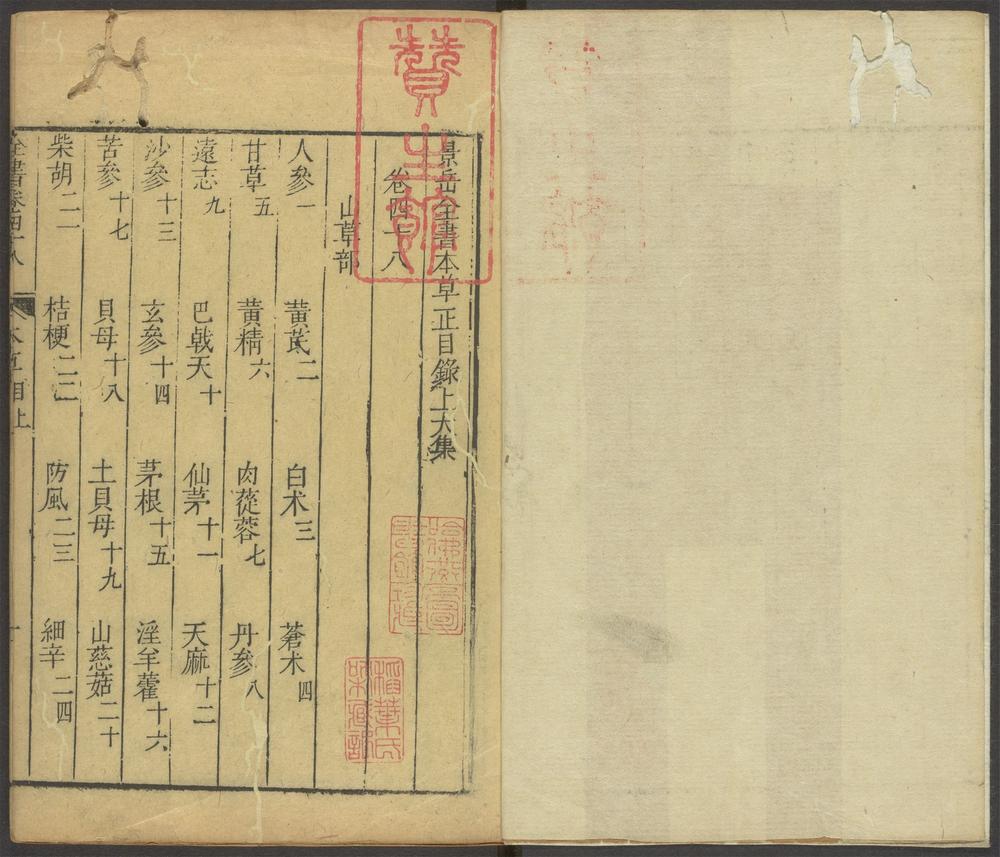 景岳全書本草正目錄上大集
卷四十八
山草部
人參一 黃芪二 白朮三 蒼朮四
甘草五 黃精六 肉蓯蓉七 丹參八
遠志九 巴戟天十 仙茅十一 天麻十二
沙參十三 玄參十四 茅根十五 淫羊藿十六
苦參十七 貝母十八 土貝母十九 山慈菇二十
柴胡二一 桔梗二二 防風二三 細辛二四
全書卷四十八 本草目上 一
贊生館
哈佛燕京圖書館珍藏
稻葉氏